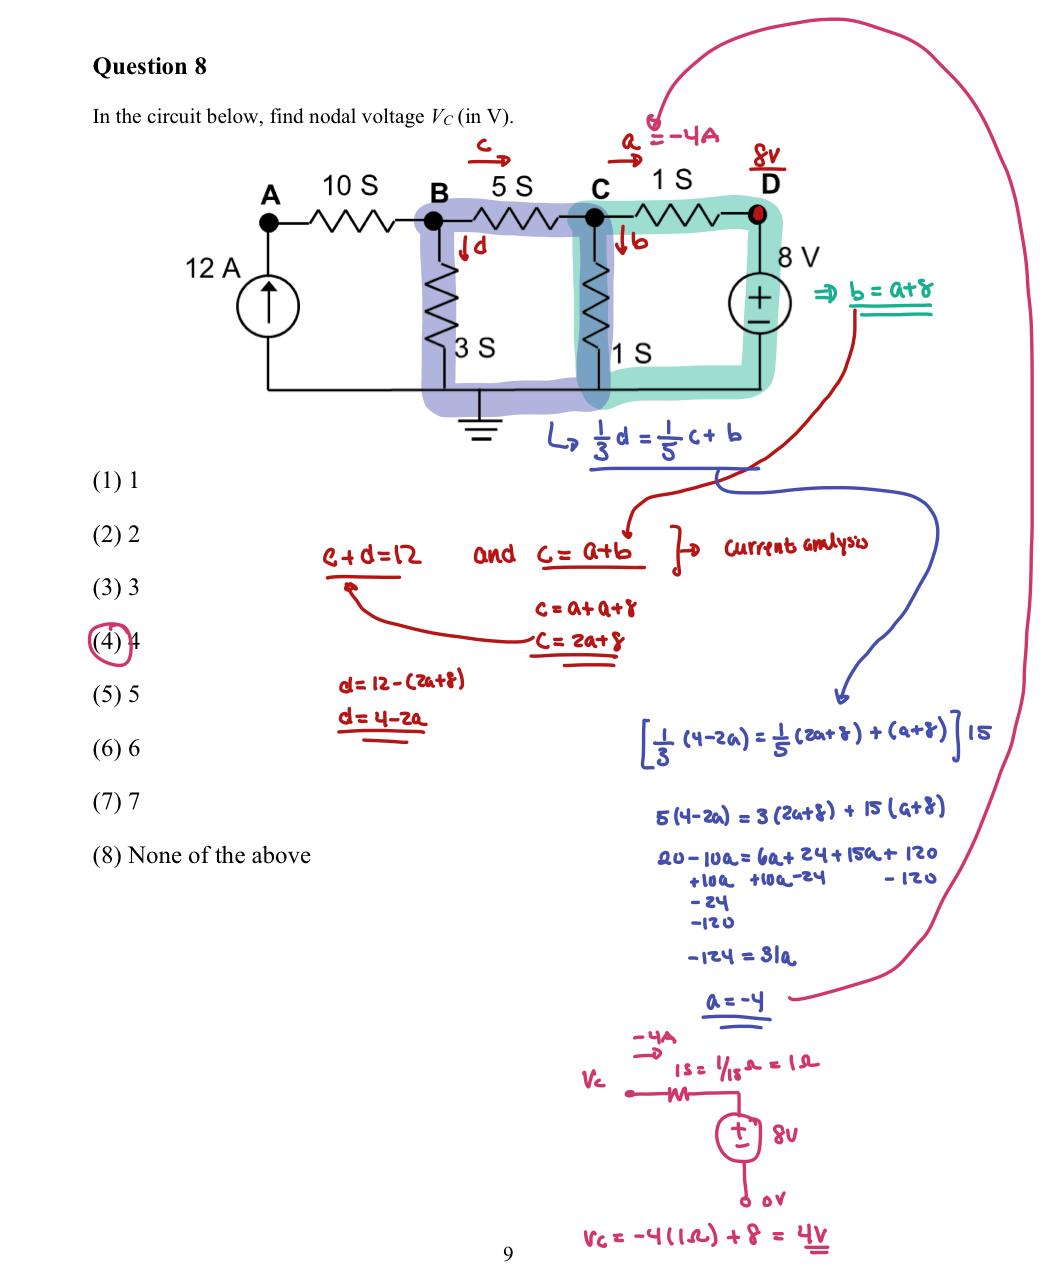 Question 8
In the circuit below, find nodal voltage VC (in V).
c
a = -4A
8V
A
10 S
B
5 S
C
1 S
D
d
b
12 A
8 V
+
−
⇒ b = a+8
3 S
1 S
↳ 1/3 d = 1/5 c + b
(1) 1
(2) 2
(3) 3
(4) 4
(5) 5
(6) 6
(7) 7
(8) None of the above
c+d=12 and c = a+b ] → current analysis
c = a+a+8
c = 2a+8
d = 12-(2a+8)
d = 4-2a
[1/3 (4-2a) = 1/5 (2a+8) + (a+8)] 15
5(4-2a) = 3(2a+8) + 15(a+8)
20-10a = 6a+24+15a+120
+10a +10a -24 -120
-24
-120
-124 = 31a
a = -4
-4A
Vc
1S = 1/1S Ω = 1Ω
+
−
8V
0V
Vc = -4(1Ω) + 8 = 4V
9